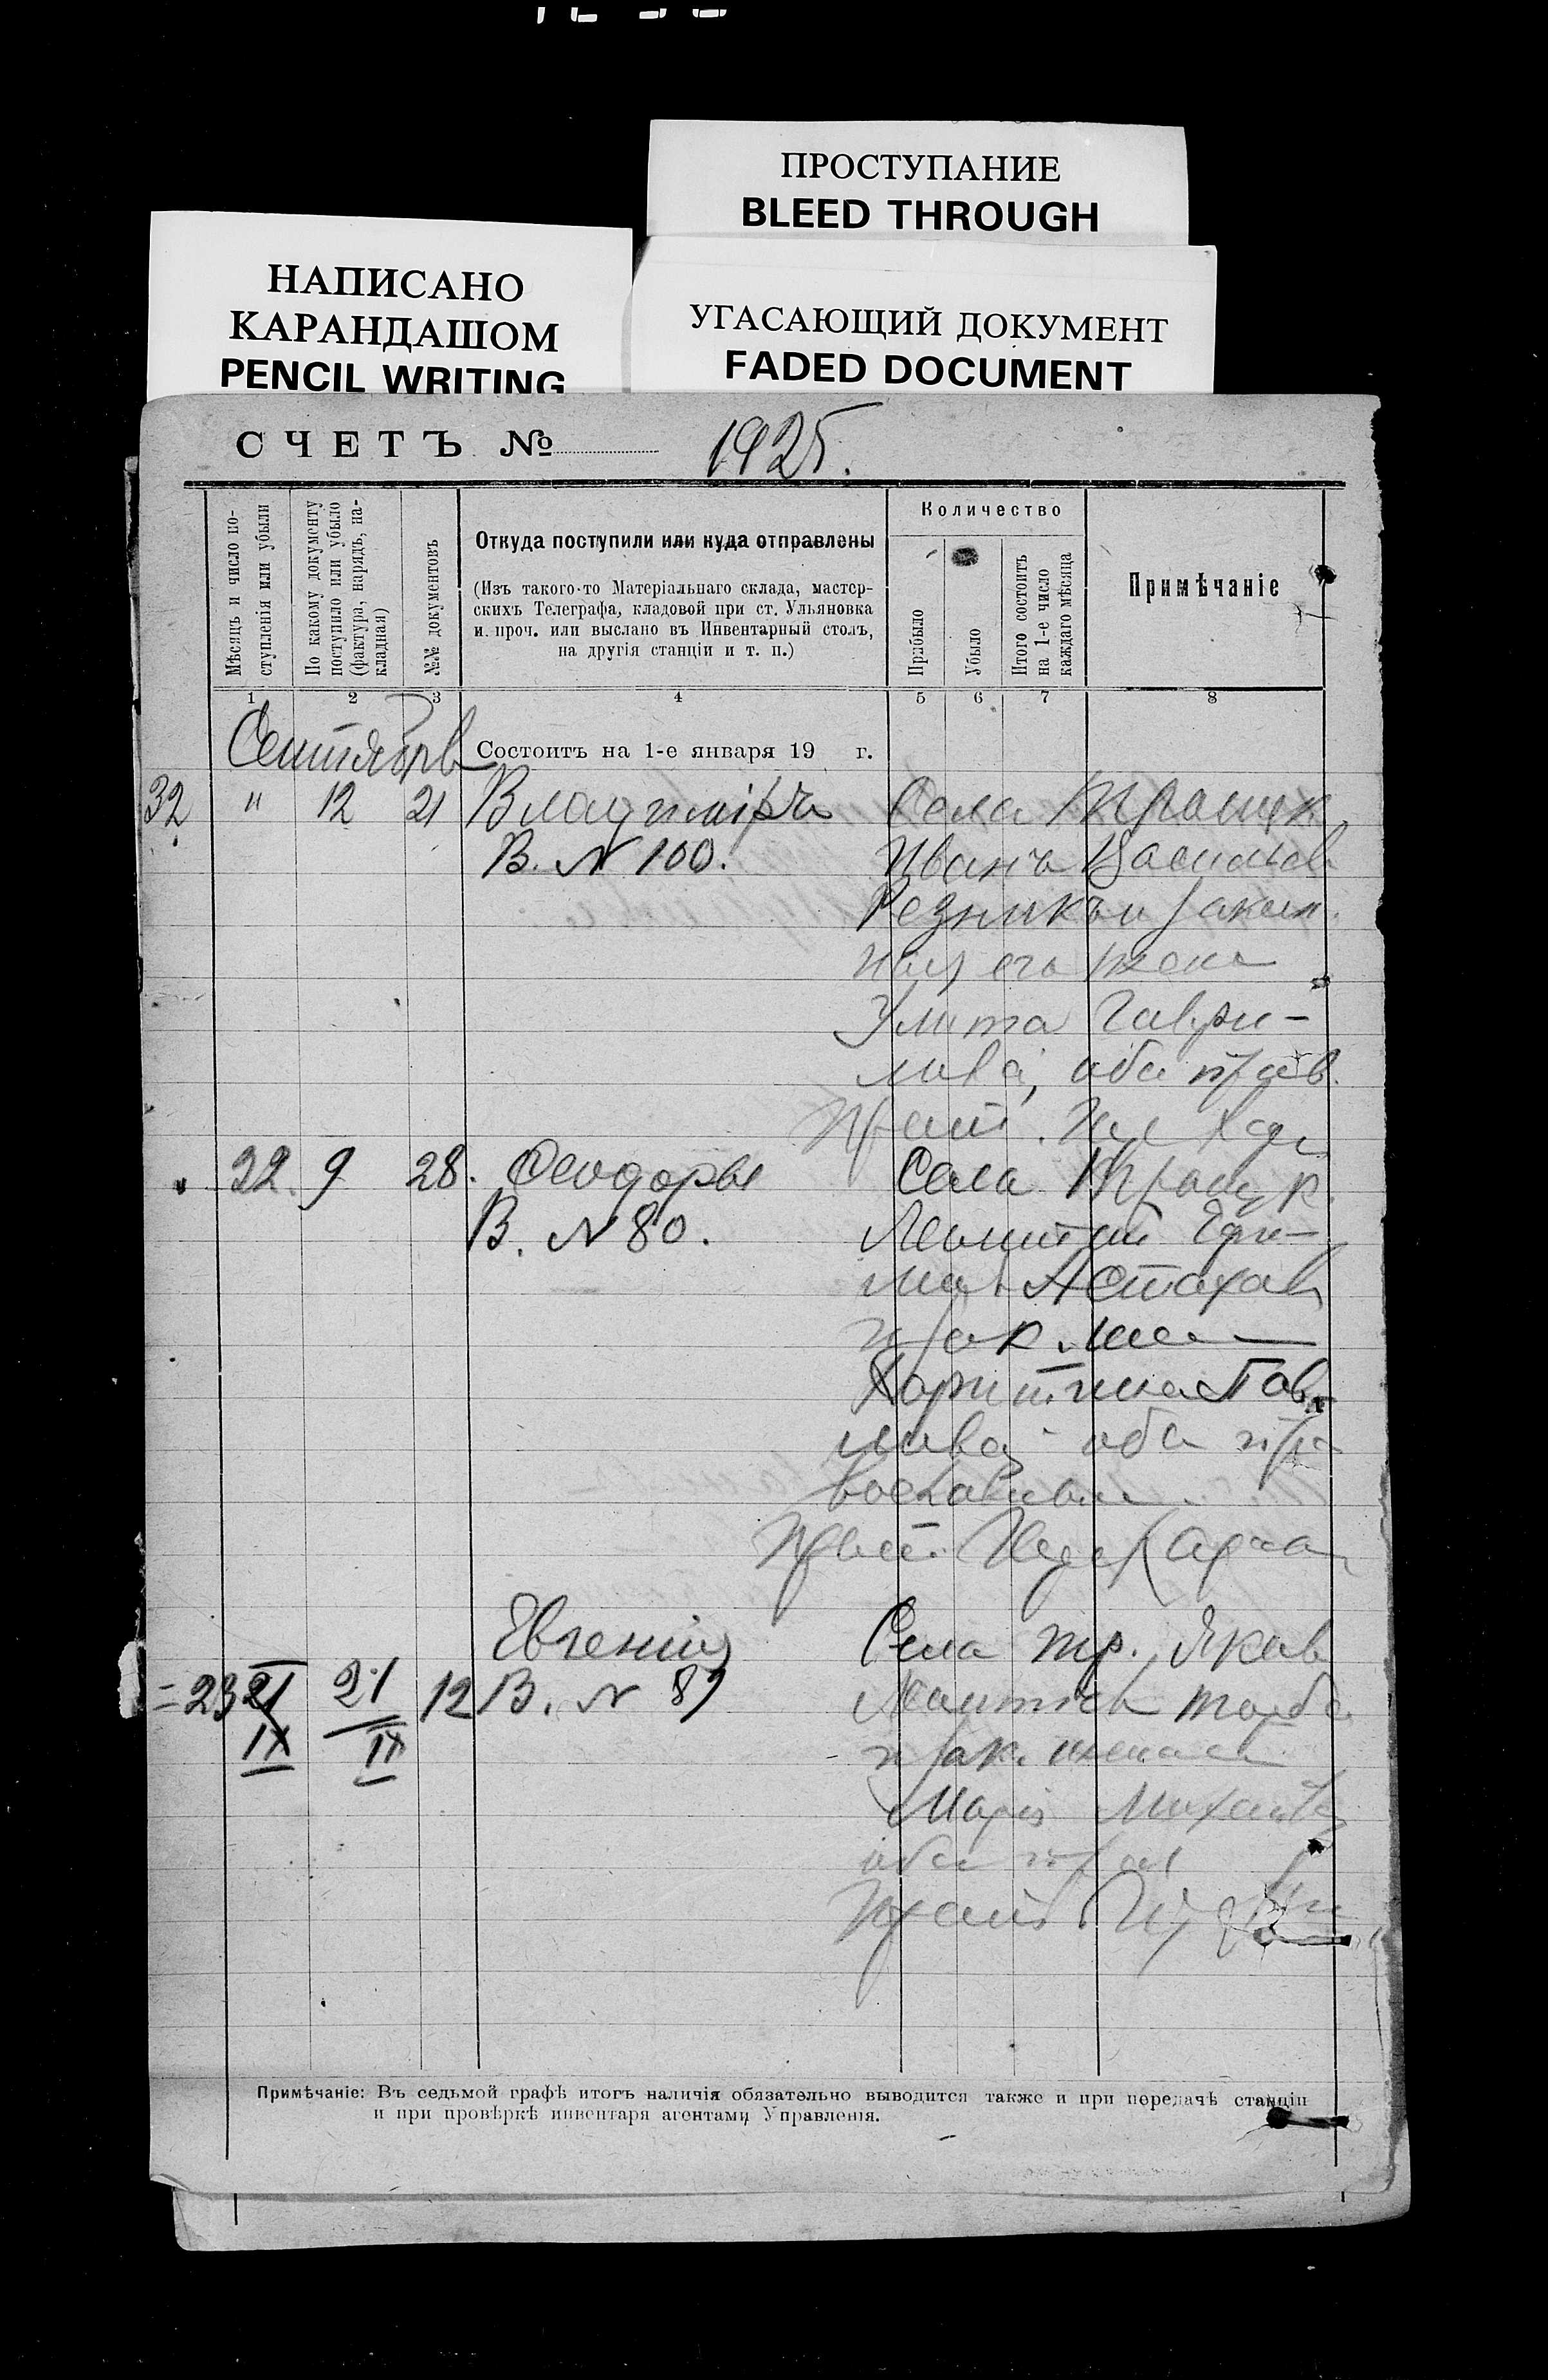 ПРОСТУПАНИЕ
BLEED THROUGH
НАПИСАНО
КАРАНДАШОМ
PENCIL WRITING
УГАСАЮЩИЙ ДОКУМЕНТ
FADED DOCUMENT
СЧЕТЪ №
1925.
Мѣсяцъ и число по-
ступленія или убыли
По какому документу
поступило или убыло
(фактура, нарядъ, на-
кладная)
№№ документовъ
Откуда поступили или куда отправлены
(Изъ такого-то Матеріальнаго склада, мастер-
скихъ Телеграфа, кладовой при ст. Ульяновка
и проч. или выслано въ Инвентарный столъ,
на другія станціи и т. п.)
Количество
Прибыло
Убыло
Итого состоитъ
на 1-е число
каждаго мѣсяца
Примѣчаніе
1 2 3 4 5 6 7 8
Сентябрь
Состоитъ на 1-е января 19 г.
32 " 12 21 Владиміръ Села
В. N 100. Иванъ Васильев
Резникъ и закон
ная его жена
Улита Гаври-
лова, оба прав.
22. 9 28. Феодоръ Села
В. N 80. Леонтий Ефи-
мов Астахов
и зак. жена
Харитина Пав
лова оба пра
вославные
Евгенія Села тр. Яков
23 21 IX 21 IX 12 В. N 87 Леонтіев
и зак. жена
Марія
оба прав
Примѣчаніе: Въ седьмой графѣ итогъ наличія обязательно выводится также и при передачѣ станціи
и при провѣркѣ инвентаря агентами Управленія.